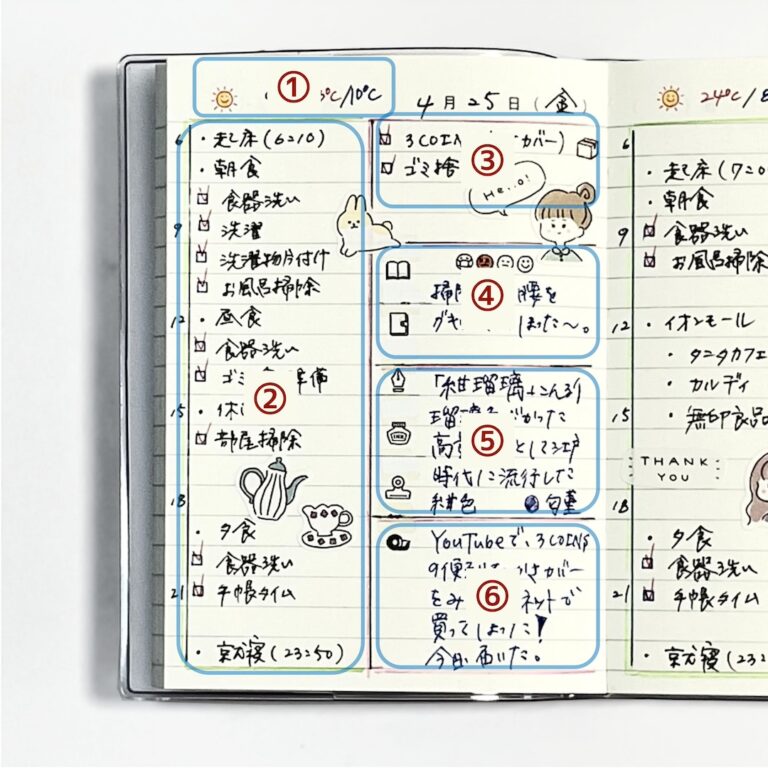 ① ℃/10℃
4月25日(金)
6 ・起床(6:10)
・朝食
食器洗い
9 洗濯
洗濯物片付け
お風呂掃除
12 ・昼食
食器洗い
ゴミ 準備
②
15 ・休
部屋掃除
18
・夕食
食器洗い
21 手帳タイム
・就寝(23:50)
3COIN カバー)
ゴミ捨 ③
Hello!
④
掃 腰を
グキ しまった〜。
「紺瑠璃(こんるり
瑠 かった
高 ⑤ として江戸
時代に流行した
紺色
INK
YouTubeで、3COINS
の便利 カバー
をみ ⑥ ネットで
買ってしまった!
今日、届いた。
24℃/8
6
・起床(7:0
・朝食
9 食器洗い
お風呂掃除
12 ・イオンモール
・タニタカフェ
・カルディ
15 ・無印良品
THANK
YOU
18
・夕食
食器洗い
21 手帳タイム
・就寝(23: